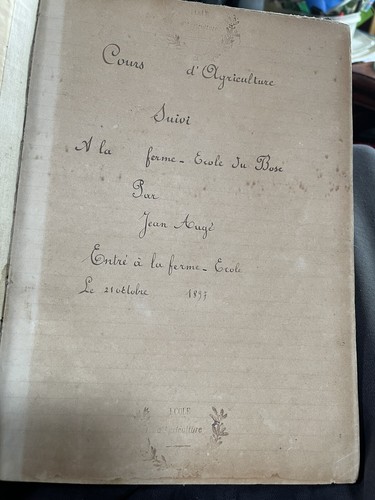 ECOLE
Cours d'Agriculture
Suivi
A la ferme-Ecole du Bosc
Par
Jean Augé
Entré à la ferme-Ecole
Le 21 octobre 1897
ECOLE
d'Agriculture